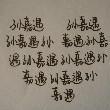 孙嘉遇 孙嘉遇
孙嘉遇孙 嘉遇孙
嘉遇孙嘉遇孙
嘉遇孙嘉遇孙
嘉遇孙
嘉遇